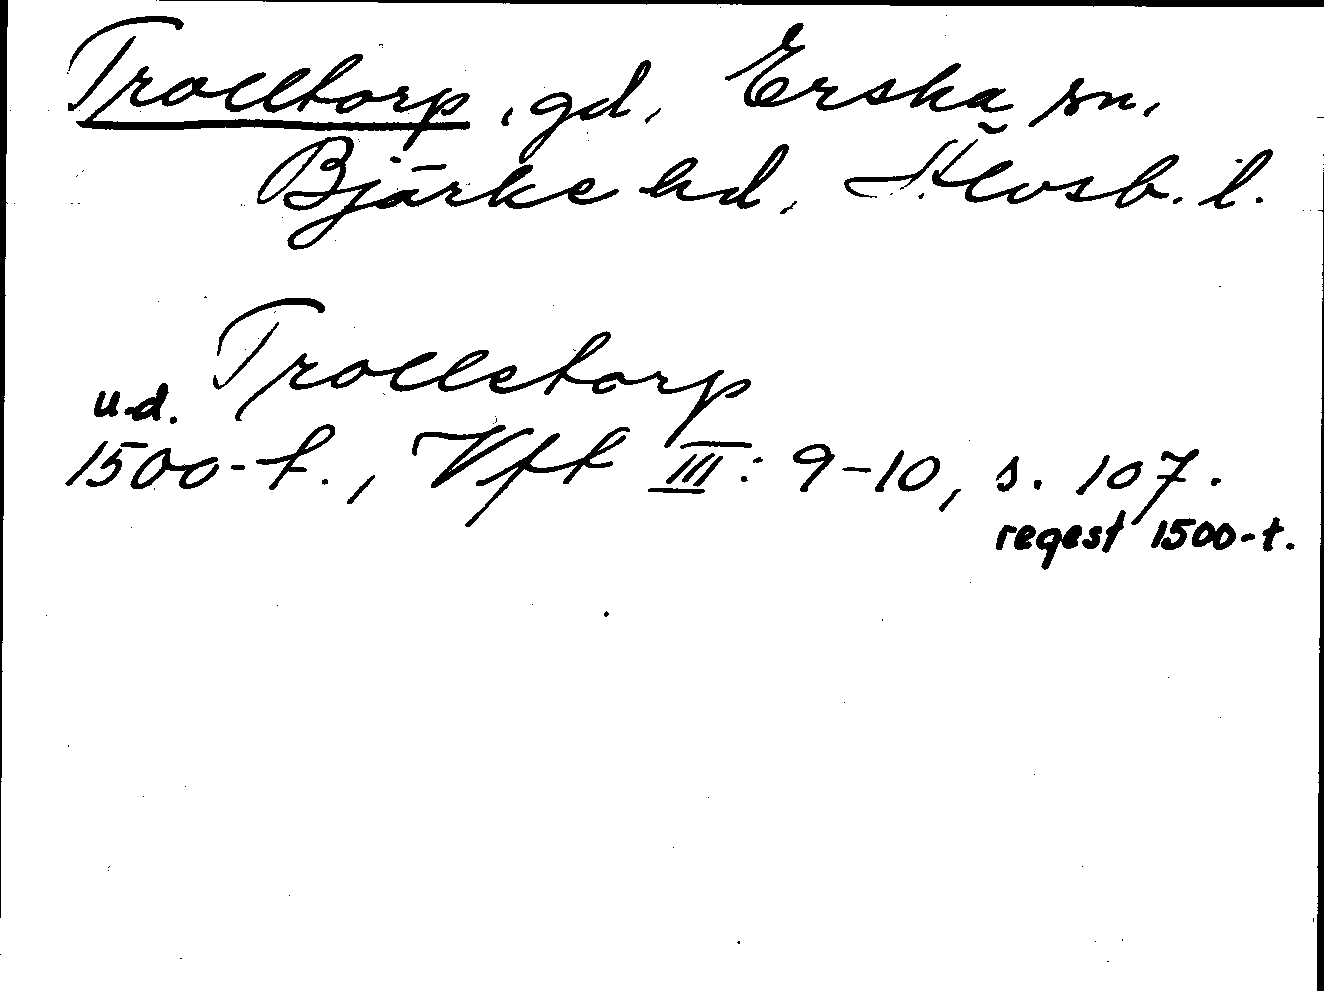 Trolltorp, gd, Erska sn,
Bjärke hd, Älvsb. l.
Trolletorp
u.d.
1500-t., Vft III: 9-10, s. 107.
regest 1500-t.